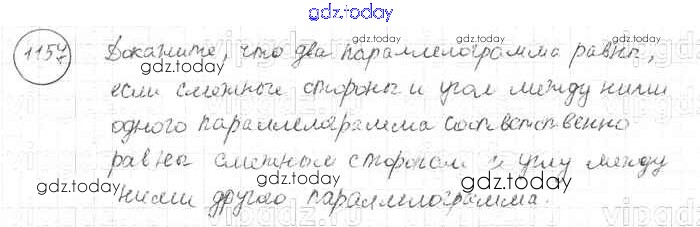 gdz.today
1157 Докажите, что два параллелограмма равны,
gdz.today
gdz.today
если смежные стороны и угол между ними
gdz.today
одного параллелограмма соответственно
gdz.today
равны смежным сторонам и углу между
gdz.today
gdz.today
ними другого параллелограмма.
gdz.today